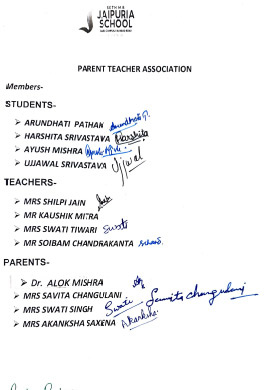 SETH M.R.
JAIPURIA
SCHOOL
PARENT TEACHER ASSOCIATION
Members-
STUDENTS-
➢ ARUNDHATI PATHAN Arundhati P.
➢ HARSHITA SRIVASTAVA Harshita
➢ AYUSH MISHRA
➢ UJJAWAL SRIVASTAVA Ujjwal
TEACHERS-
➢ MRS SHILPI JAIN
➢ MR KAUSHIK MITRA
➢ MRS SWATI TIWARI Swati
➢ MR SOIBAM CHANDRAKANTA
PARENTS-
➢ Dr. ALOK MISHRA
➢ MRS SAVITA CHANGULANI Savita Changulani
➢ MRS SWATI SINGH Swati
➢ MRS AKANKSHA SAXENA Akanksha